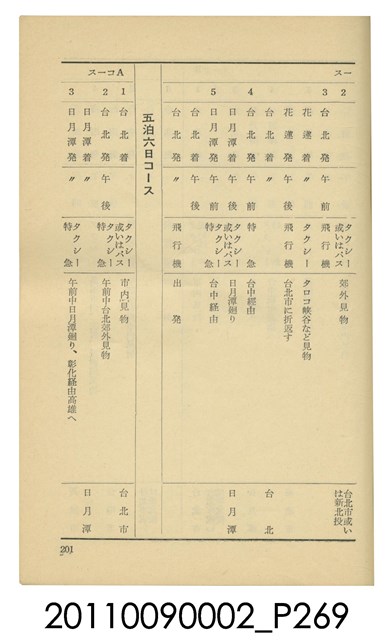 スー
2
郊外見物
タクシー
或いはバス
台北市或い
は新北投
3
台北発
午前
飛行機
花蓮着
タクシー
タロコ峡谷など見物
花蓮発
午後
飛行機
台北市に折返す
台北着
〃
台北
4
台北発
午前
特急
台中経由
日月潭着
午後
タクシー
日月潭廻り
日月潭
5
日月潭発
午前
特急
台中経由
台北着
午後
台北発
〃
飛行機
出発
五泊六日コース
スーコA
1
台北着
タクシー
或いはバス
市内見物
台北市
2
台北発
午後
タクシー
特急
午前中台北郊外見物
日月潭着
〃
日月潭
3
日月潭発
〃
タクシー
特急
午前中日月潭廻り、彰化経由高雄へ
201
20110090002_P269